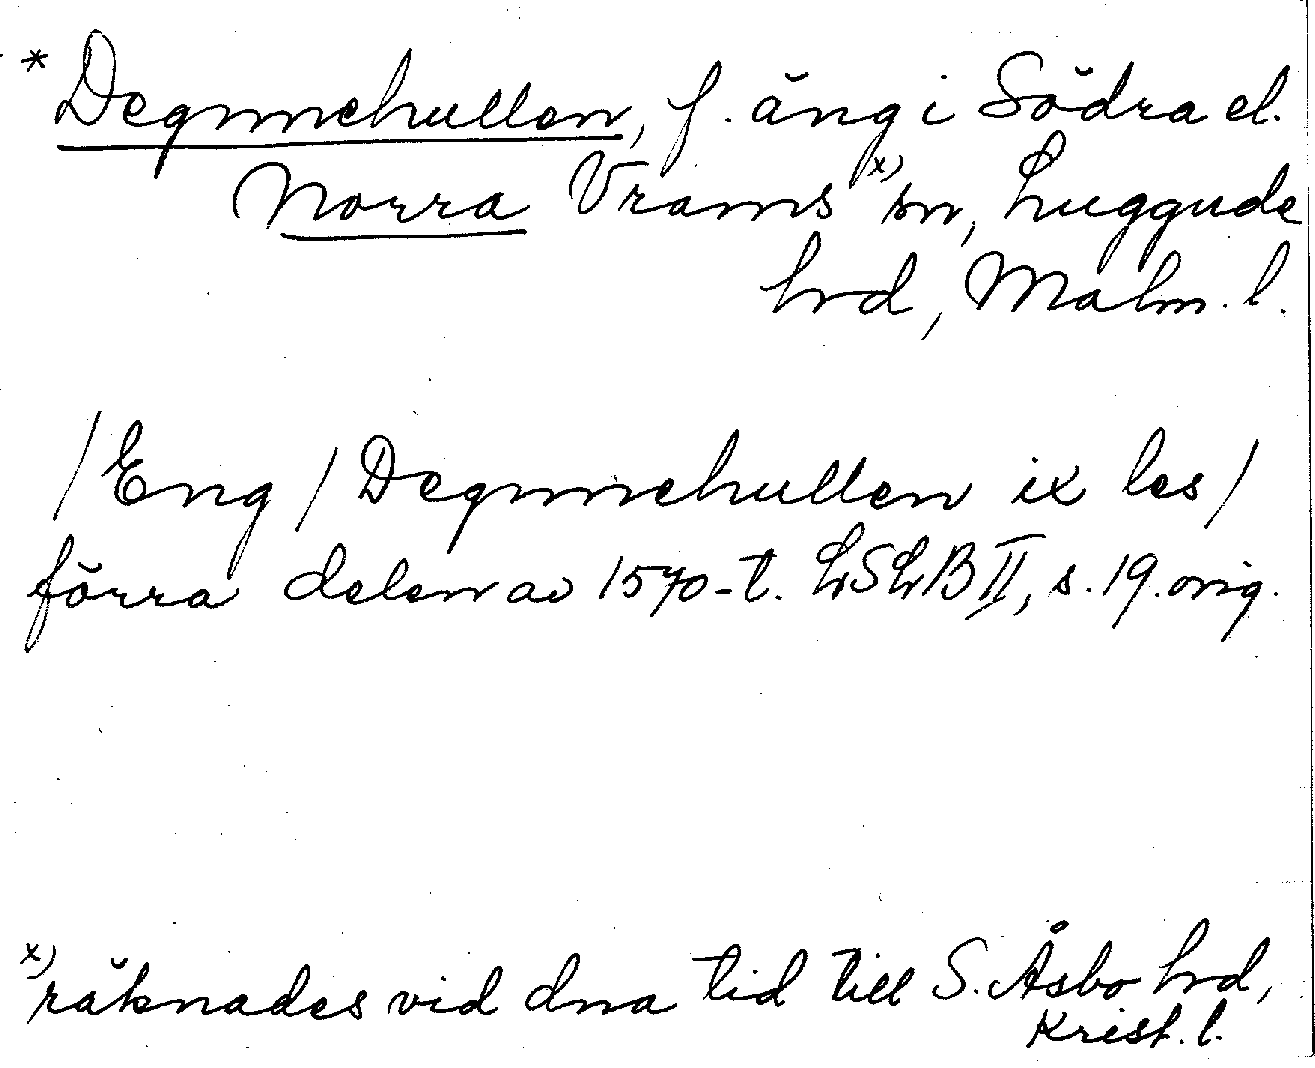 * Degnnehullen, f. äng i Södra el.
Norra Vrams x) sn, Luggude
hrd, Malm. l.
/Eng/ Degnnehullen ix les/
förra delen av 1570-t. LSLB II, s. 19. orig.
x) räknades vid dna tid till S. Åsbo hrd,
Krist. l.